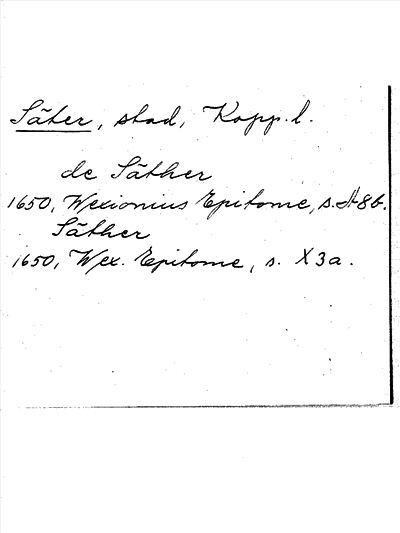 Säter, stad, Kopp. l.
de Säther
1650, Wexionius Epitome, s. A 8 b.
Säther
1650, Wex. Epitome, s. X 3 a.